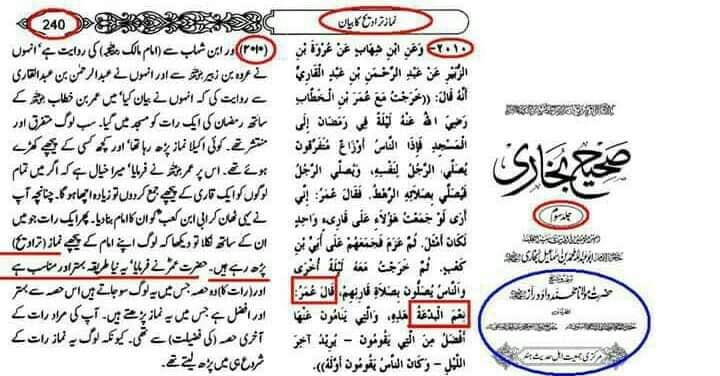 240
نماز تراویح کا بیان
(۲۰۱۰) اور ابن شہاب سے (امام مالک رحمہ اللہ) کی روایت ہے، انہوں
نے عروہ بن زبیر رضی اللہ عنہ سے اور انہوں نے عبدالرحمٰن بن عبدالقاری
سے روایت کی کہ انہوں نے بیان کیا "میں عمر بن خطاب رضی اللہ عنہ کے
ساتھ رمضان کی ایک رات کو مسجد میں گیا۔ سب لوگ متفرق اور
منتشر تھے۔ کوئی اکیلا نماز پڑھ رہا تھا، اور کچھ کسی کے پیچھے کھڑے
ہوئے تھے۔ اس پر عمر رضی اللہ عنہ نے فرمایا، میرا خیال ہے کہ اگر میں تمام
لوگوں کو ایک قاری کے پیچھے جمع کر دوں تو زیادہ اچھا ہو گا۔ چنانچہ آپ
نے یہی ٹھان کر ابی ابن کعب کو ان کا امام بنا دیا۔ پھر ایک رات جو میں
ان کے ساتھ نکلا تو دیکھا کہ لوگ اپنے امام کے پیچھے نماز (تراویح)
پڑھ رہے ہیں۔ حضرت عمرؓ نے فرمایا، یہ نیا طریقہ بہتر اور مناسب ہے
اور (رات کا) وہ حصہ جس میں یہ لوگ سو جاتے ہیں اس حصہ سے بہتر
اور افضل ہے جس میں یہ نماز پڑھتے ہیں۔ آپ کی مراد رات کے
آخری حصہ (کی فضیلت) سے تھی۔ کیونکہ لوگ یہ نماز رات کے
شروع ہی میں پڑھ لیتے تھے۔
۲۰۱۰- وَعَنِ ابْنِ شِهَابٍ عَنْ عُرْوَةَ بْنِ
الزُّبَيْرِ عَنْ عَبْدِ الرَّحْمَنِ بْنِ عَبْدِ الْقَارِيِّ
أَنَّهُ قَالَ: ((خَرَجْتُ مَعَ عُمَرَ بْنِ الْخَطَّابِ
رَضِيَ اللهُ عَنْهُ لَيْلَةً فِي رَمَضَانَ إِلَى
الْمَسْجِدِ فَإِذَا النَّاسُ أَوْزَاعٌ مُتَفَرِّقُونَ
يُصَلِّي الرَّجُلُ لِنَفْسِهِ، وَيُصَلِّي الرَّجُلُ
فَيُصَلِّي بِصَلاَتِهِ الرَّهْطُ. فَقَالَ عُمَرُ: إِنِّي
أَرَى لَوْ جَمَعْتُ هَؤُلاَءِ عَلَى قَارِىءٍ وَاحِدٍ
لَكَانَ أَمْثَلَ. ثُمَّ عَزَمَ فَجَمَعَهُمْ عَلَى أُبَيِّ بْنِ
كَعْبٍ. ثُمَّ خَرَجْتُ مَعَهُ لَيْلَةً أُخْرَى
وَالنَّاسُ يُصَلُّونَ بِصَلاَةِ قَارِئِهِمْ، قَالَ عُمَرُ:
نِعْمَ الْبِدْعَةُ هَذِهِ، وَالَّتِي يَنَامُونَ عَنْهَا
أَفْضَلُ مِنَ الَّتِي يَقُومُونَ - يُرِيدُ آخِرَ
اللَّيْلِ - وَكَانَ النَّاسُ يَقُومُونَ أَوَّلَهُ)).
صحیح بخاری
جلد سوم
حضرت مولانا محمد داؤد راز
مرکزی جمعیت اہل حدیث ہند